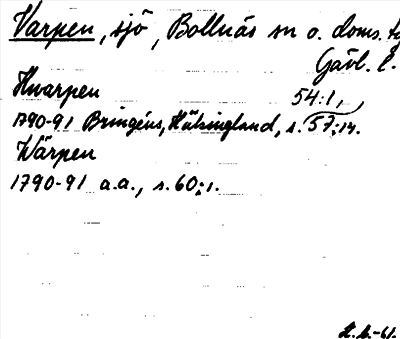 Varpen, sjö, Bollnäs sn o. doms.
Gävl. l.
Hvarpen 54:1,
1790-91 Bringéus, Hälsingland, s. 57:14.
Wärpen
1790-91 a.a., s. 60:1.